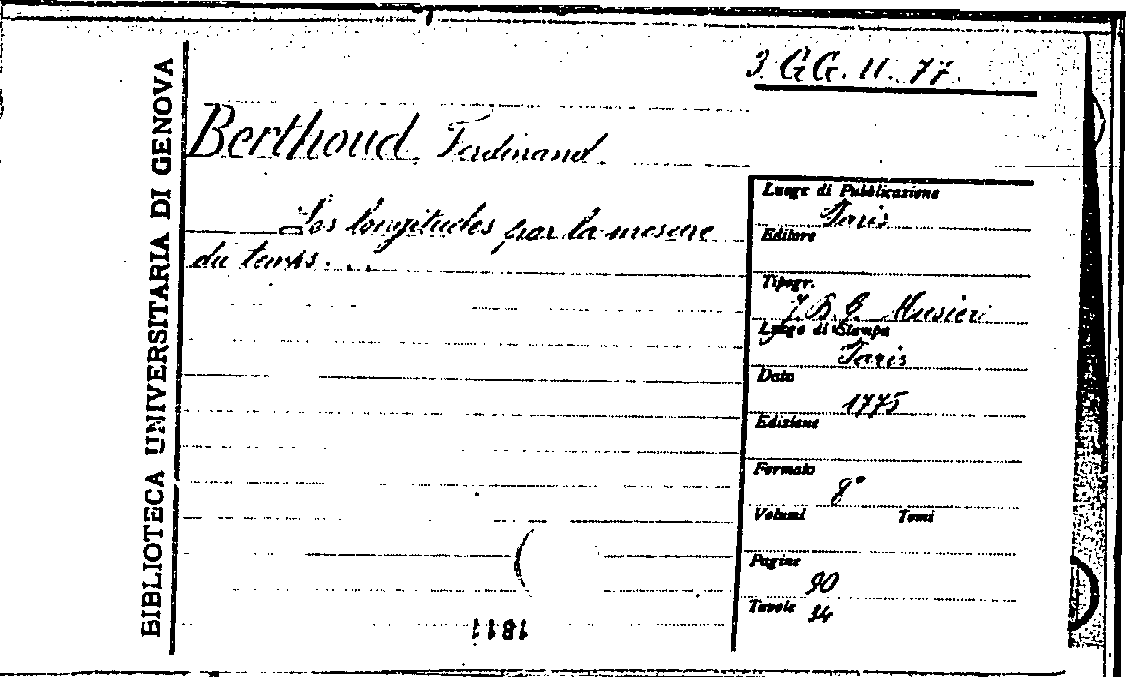 3. GG. II. 77.
BIBLIOTECA UNIVERSITARIA DI GENOVA
Berthoud Ferdinand.
Les longitudes par la mesure
du temps. . .
Luogo di Pubblicazione
Paris
Editore
Tipogr.
J. B. G. Musieri
Luogo di Stampa
Paris
Data
1775
Edizione
Formato
8°
Volumi Tomi
Pagine
90
Tavole 34
1811